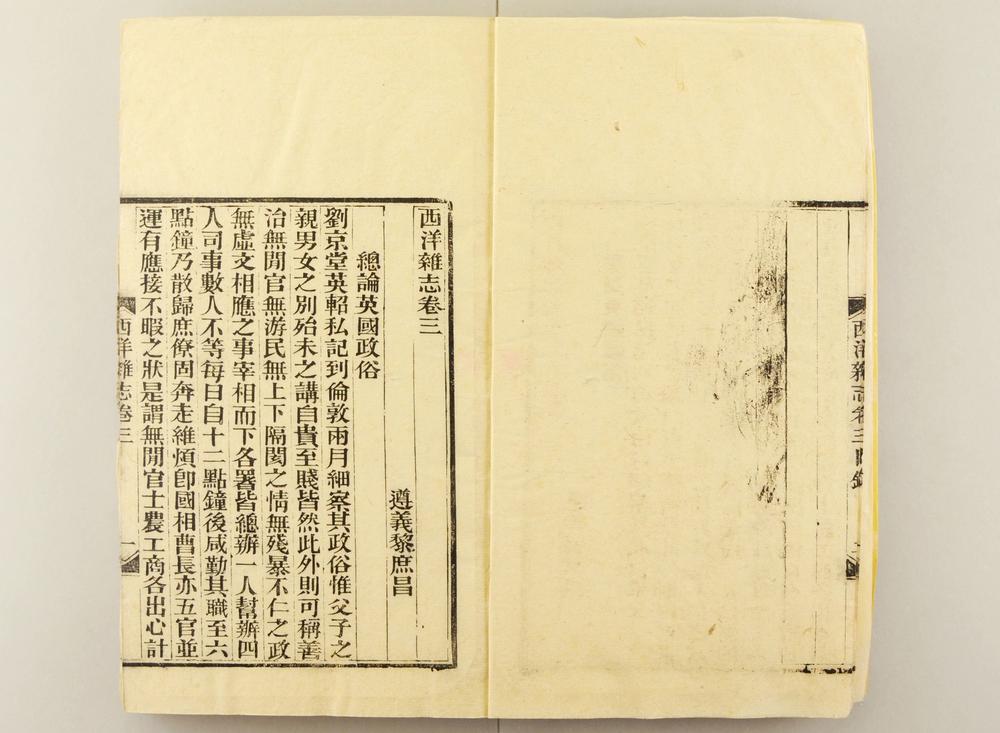 西洋雜志卷三
遵義黎庶昌
總論英國政俗
劉京堂英軺私記到倫敦兩月細察其政俗惟父子之
親男女之別殆未之講自貴至賤皆然此外則可稱善
治無閒官無游民無上下隔閡之情無殘暴不仁之政
無虛文相應之事宰相而下各署皆總辦一人幫辦四
人司事數人不等每日自十二點鐘後咸勤其職至六
點鐘乃散歸庶僚固奔走維煩卽國相曹長亦五官並
運有應接不暇之狀是謂無閒官士農工商各出心計
西洋雜志卷三
一
西洋雜志卷三